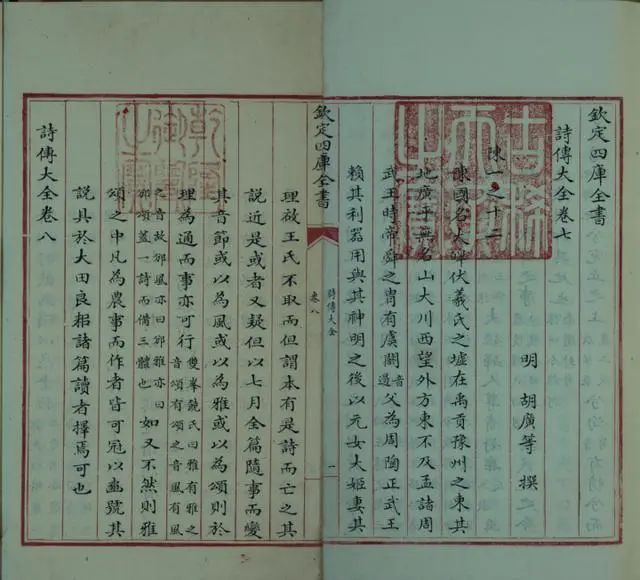 欽定四庫全書
詩傳大全卷七
明 胡廣等 撰
陳一之十二
陳國名大皥伏羲氏之墟在禹貢豫州之東其
地廣平無名山大川西望外方東不及孟諸周
武王時帝舜之胄有虞閼音遏父為周陶正武王
賴其利器用與其神明之後以元女大姬妻其
古稀天子之寶
詩傳大全
卷八
一
欽定四庫全書
理故王氏不取而但謂本有是詩而亡之其
說近是或者又疑但以七月全篇隨事而變
其音節或以為風或以為雅或以為頌則於
理為通而事亦可行雙峯饒氏曰雅有雅之音頌有頌之音風有風
之音故豳風亦曰豳雅亦曰豳頌蓋一詩而備三體也如又不然則雅
頌之中凡為農事而作者皆可冠以豳號其
說具於大田良耜諸篇讀者擇焉可也
詩傳大全卷八
乾隆御覽之寶